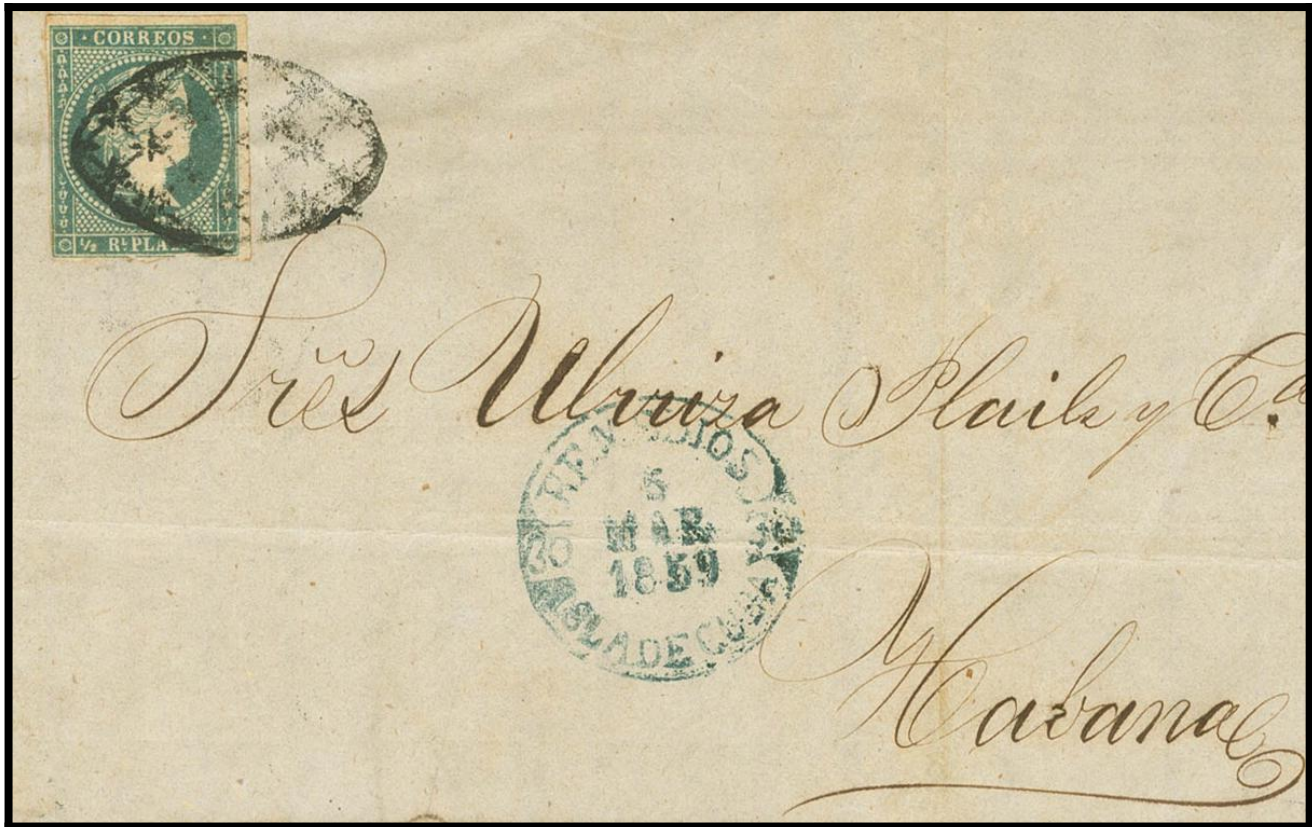 · CORREOS ·
½ Rˡ PLA
Sres Urruza Plaik y Cª
REMEDIOS
5
MAR
1859
30
ISLA DE CUBA
Habana